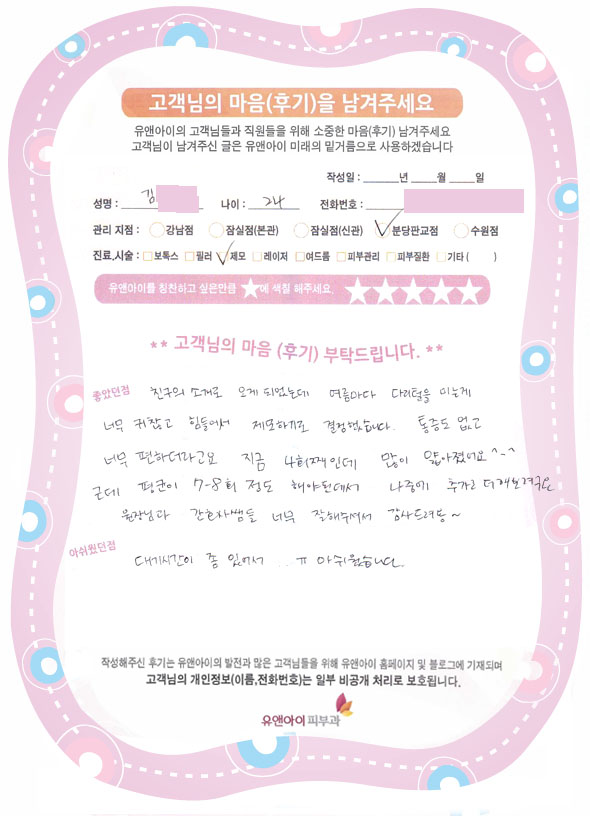 고객님의 마음(후기)을 남겨주세요
유앤아이의 고객님들과 직원들을 위해 소중한 마음(후기) 남겨주세요
고객님이 남겨주신 글은 유앤아이 미래의 밑거름으로 사용하겠습니다
작성일 : 년 월 일
성명 : 김 나이 : 24 전화번호 :
관리 지점 : 강남점 잠실점(본관) 잠실점(신관) 분당판교점 수원점
진료,시술 : 보톡스 필러 제모 레이저 여드름 피부관리 피부질환 기타 ( )
유앤아이를 칭찬하고 싶은만큼 ★에 색칠 해주세요. ★★★★★
** 고객님의 마음 (후기) 부탁드립니다. **
좋았던점 친구의 소개로 오게 되었는데 여름마다 다리털을 미는게
너무 귀찮고 힘들어서 제모하기로 결정했습니다. 통증도 없고
너무 편하더라고요 지금 4회째인데 많이 얇아졌어요^-^
근데 평균이 7-8회 정도 해야된데서 나중에 추가로 더
원장님과 간호사쌤들 너무 잘해주셔서 감사드려용~
아쉬웠던점
대기시간이 좀 있어서 ... ㅠ 아쉬웠습니다.
작성해주신 후기는 유앤아이의 발전과 많은 고객님들을 위해 유앤아이 홈페이지 및 블로그에 기재되며
고객님의 개인정보(이름,전화번호)는 일부 비공개 처리로 보호됩니다.
유앤아이피부과